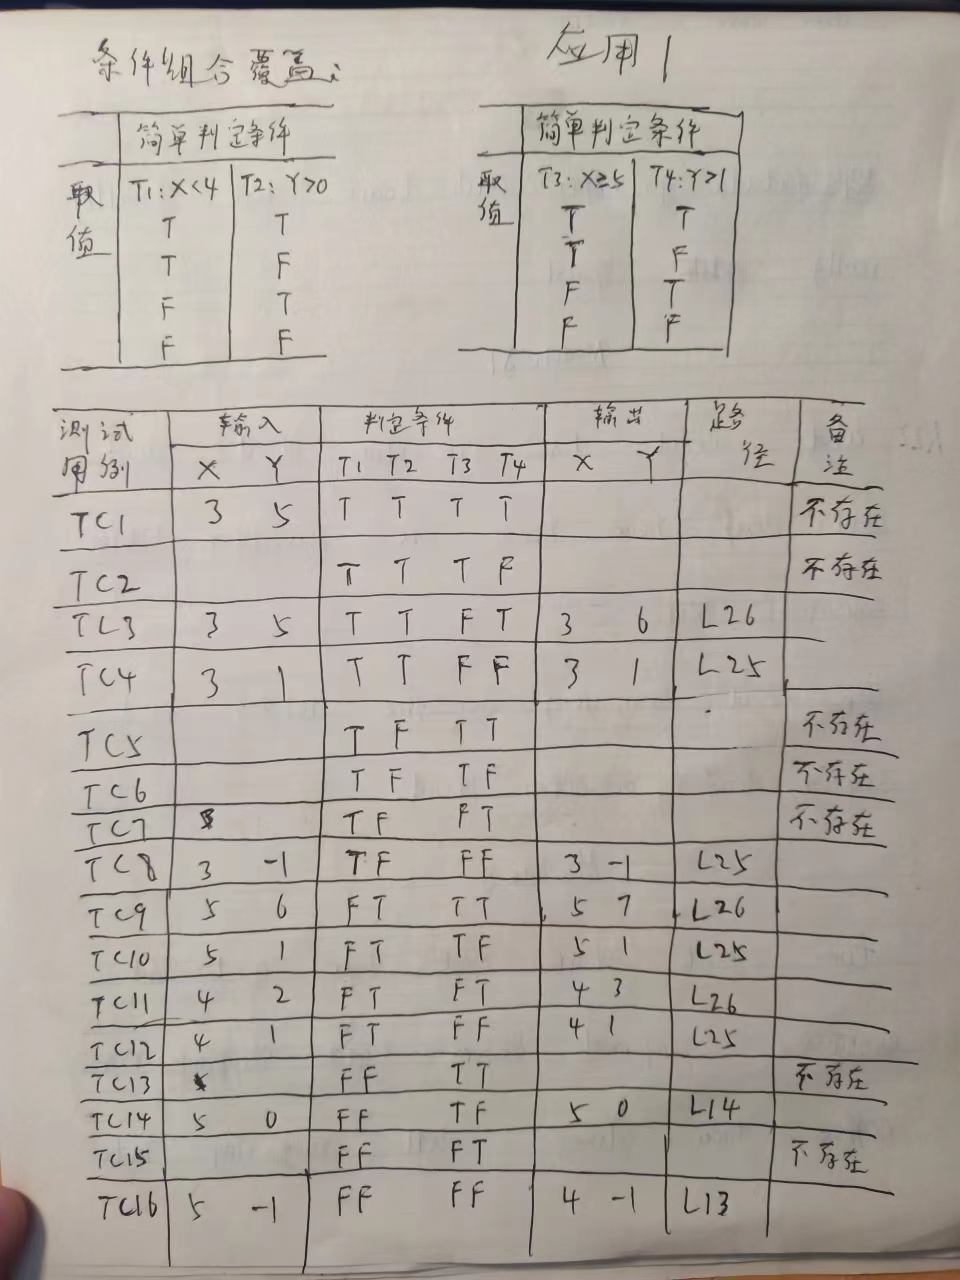 条件组合覆盖: 应用1
简单判定条件 简单判定条件
取值 T1:X<4 T2:Y>0 取值 T3:X≥5 T4:Y>1
T T T T
T F T F
F T F T
F F F F
测试用例 输入 判定条件 输出 路径 备注
X Y T1 T2 T3 T4 X Y
TC1 3 5 T T T T 不存在
TC2 T T T F 不存在
TC3 3 5 T T F T 3 6 L26
TC4 3 1 T T F F 3 1 L25
TC5 T F T T 不存在
TC6 T F T F 不存在
TC7 T F F T 不存在
TC8 3 -1 T F F F 3 -1 L25
TC9 5 6 F T T T 5 7 L26
TC10 5 1 F T T F 5 1 L25
TC11 4 2 F T F T 4 3 L26
TC12 4 1 F T F F 4 1 L25
TC13 F F T T 不存在
TC14 5 0 F F T F 5 0 L14
TC15 F F F T 不存在
TC16 5 -1 F F F F 4 -1 L13